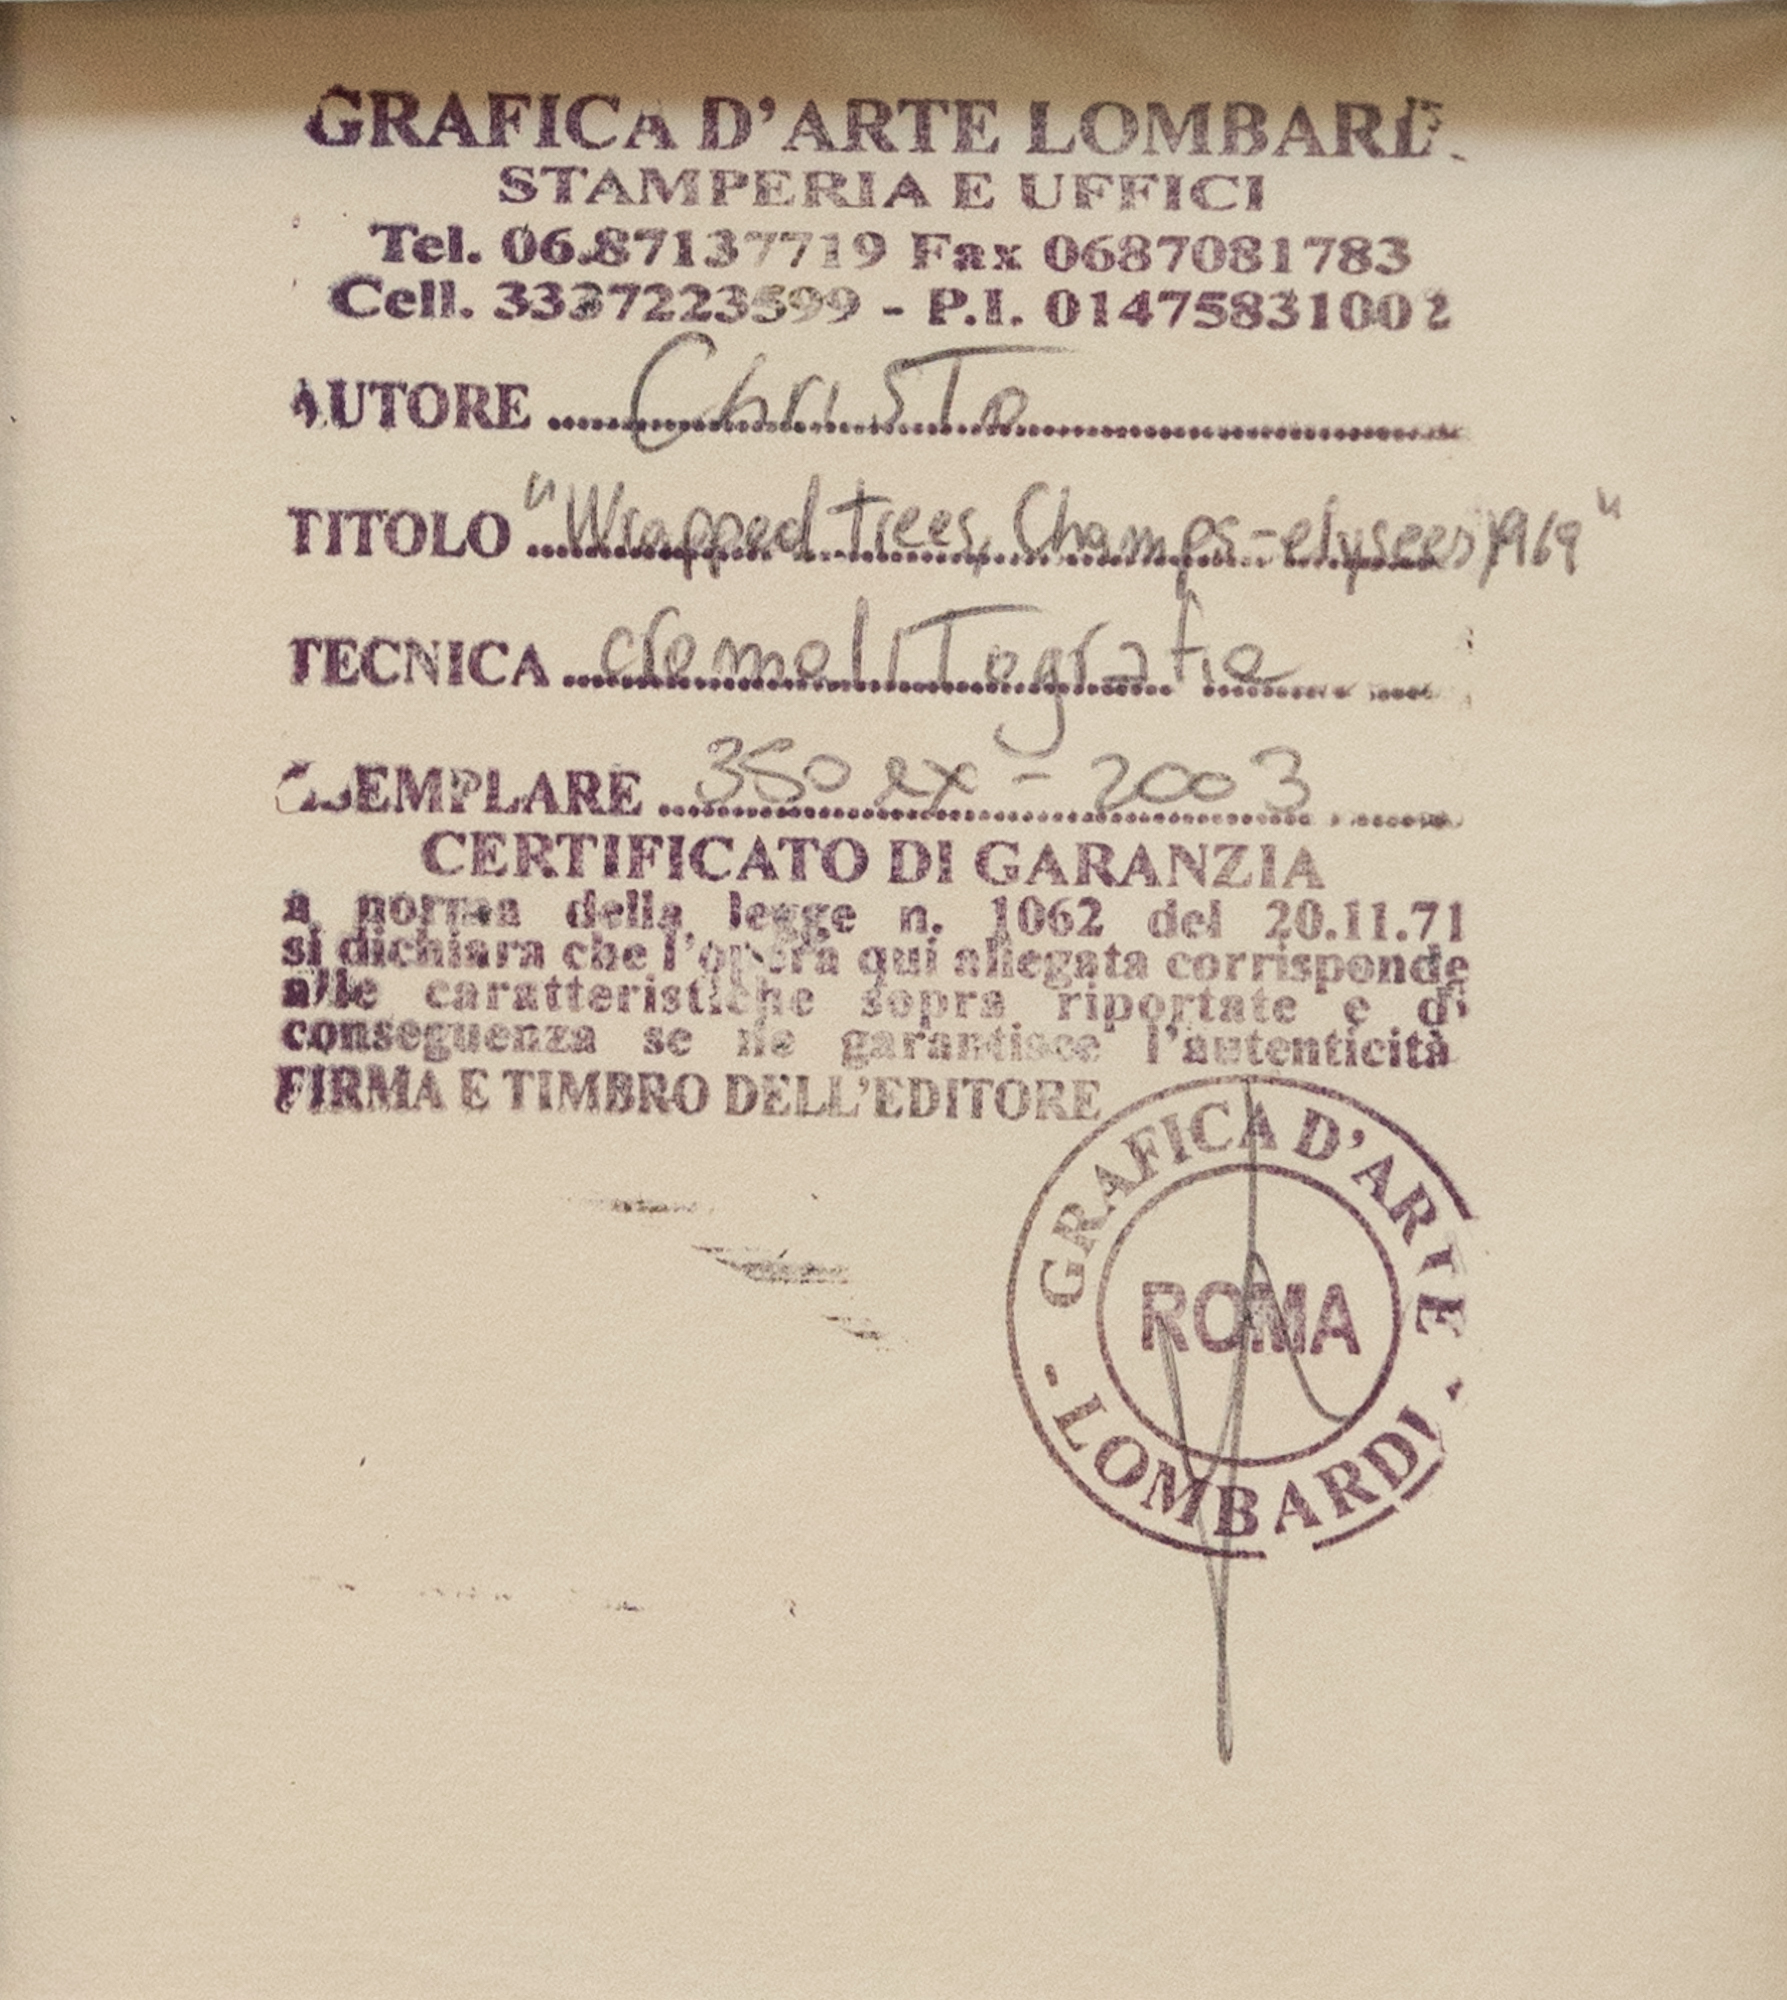 GRAFICA D'ARTE LOMBARD
STAMPERIA E UFFICI
Tel. 06.87137719 Fax 0687081783
Cell. 3337223599 - P.I. 01475831002
AUTORE Christo
TITOLO "Wrapped trees, Champs-elysees, 1969"
TECNICA cromolitografia
ESEMPLARE 350 ex - 2003
CERTIFICATO DI GARANZIA
a norma della legge n. 1062 del 20.11.71
si dichiara che l'opera qui allegata corrisponde
alle caratteristiche sopra riportate e di
conseguenza se ne garantisce l'autenticità
FIRMA E TIMBRO DELL'EDITORE
GRAFICA D'ARTE
ROMA
- LOMBARDI